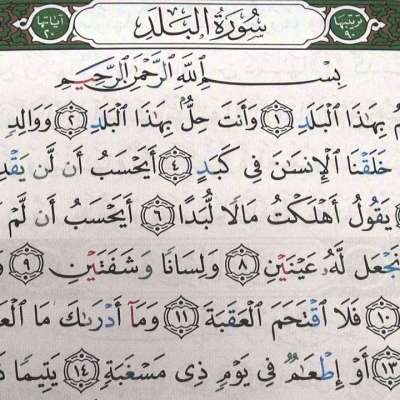 ترتيبها ٩٠ سُورَةُ الْبَلَدِ آياتها ٢٠
بِسْمِ اللَّهِ الرَّحْمَٰنِ الرَّحِيمِ
بِهَٰذَا الْبَلَدِ ١ وَأَنتَ حِلٌّ بِهَٰذَا الْبَلَدِ ٢ وَوَالِدٍ
خَلَقْنَا الْإِنسَانَ فِي كَبَدٍ ٤ أَيَحْسَبُ أَن لَّن يَقْدِ
يَقُولُ أَهْلَكْتُ مَالًا لُّبَدًا ٦ أَيَحْسَبُ أَن لَّمْ
نَجْعَل لَّهُ عَيْنَيْنِ ٨ وَلِسَانًا وَشَفَتَيْنِ ٩
١٠ فَلَا اقْتَحَمَ الْعَقَبَةَ ١١ وَمَا أَدْرَىٰكَ مَا الْعَ
١٣ أَوْ إِطْعَامٌ فِي يَوْمٍ ذِي مَسْغَبَةٍ ١٤ يَتِيمًا ذَ